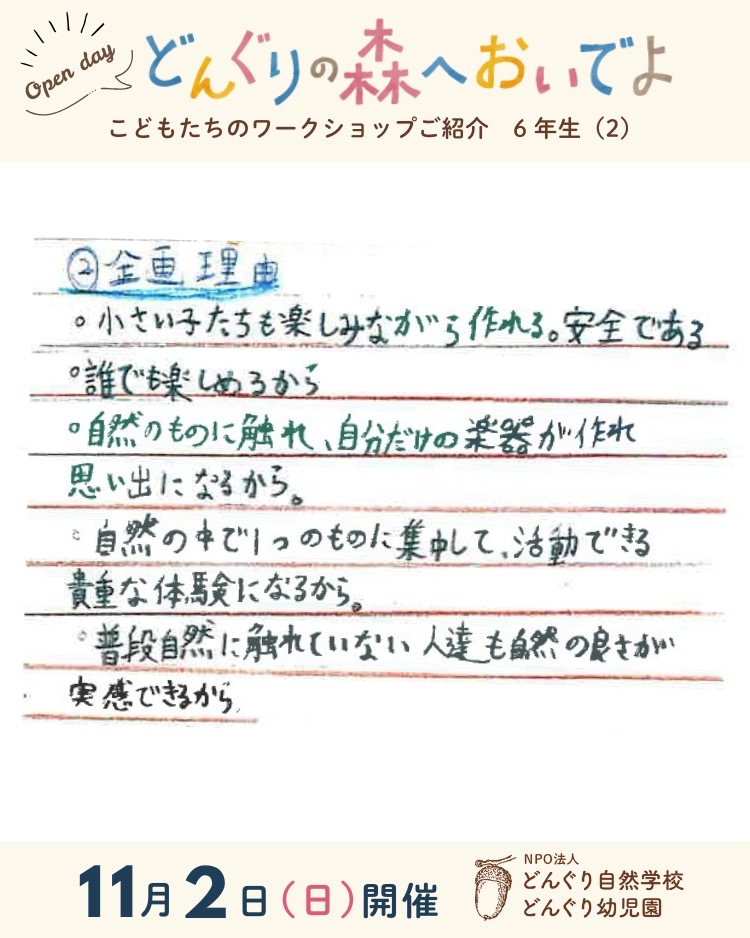 Open day
どんぐりの森へおいでよ
こどもたちのワークショップご紹介　6年生（2）
②企画理由
。小さい子たちも楽しみながら作れる。安全である
。誰でも楽しめるから
。自然のものに触れ、自分だけの楽器が作れ
思い出になるから。
。自然の中で1つのものに集中して、活動できる
貴重な体験になるから。
。普段自然に触れていない人達も自然の良さが
実感できるから
11月2日（日）開催
NPO法人
どんぐり自然学校
どんぐり幼児園